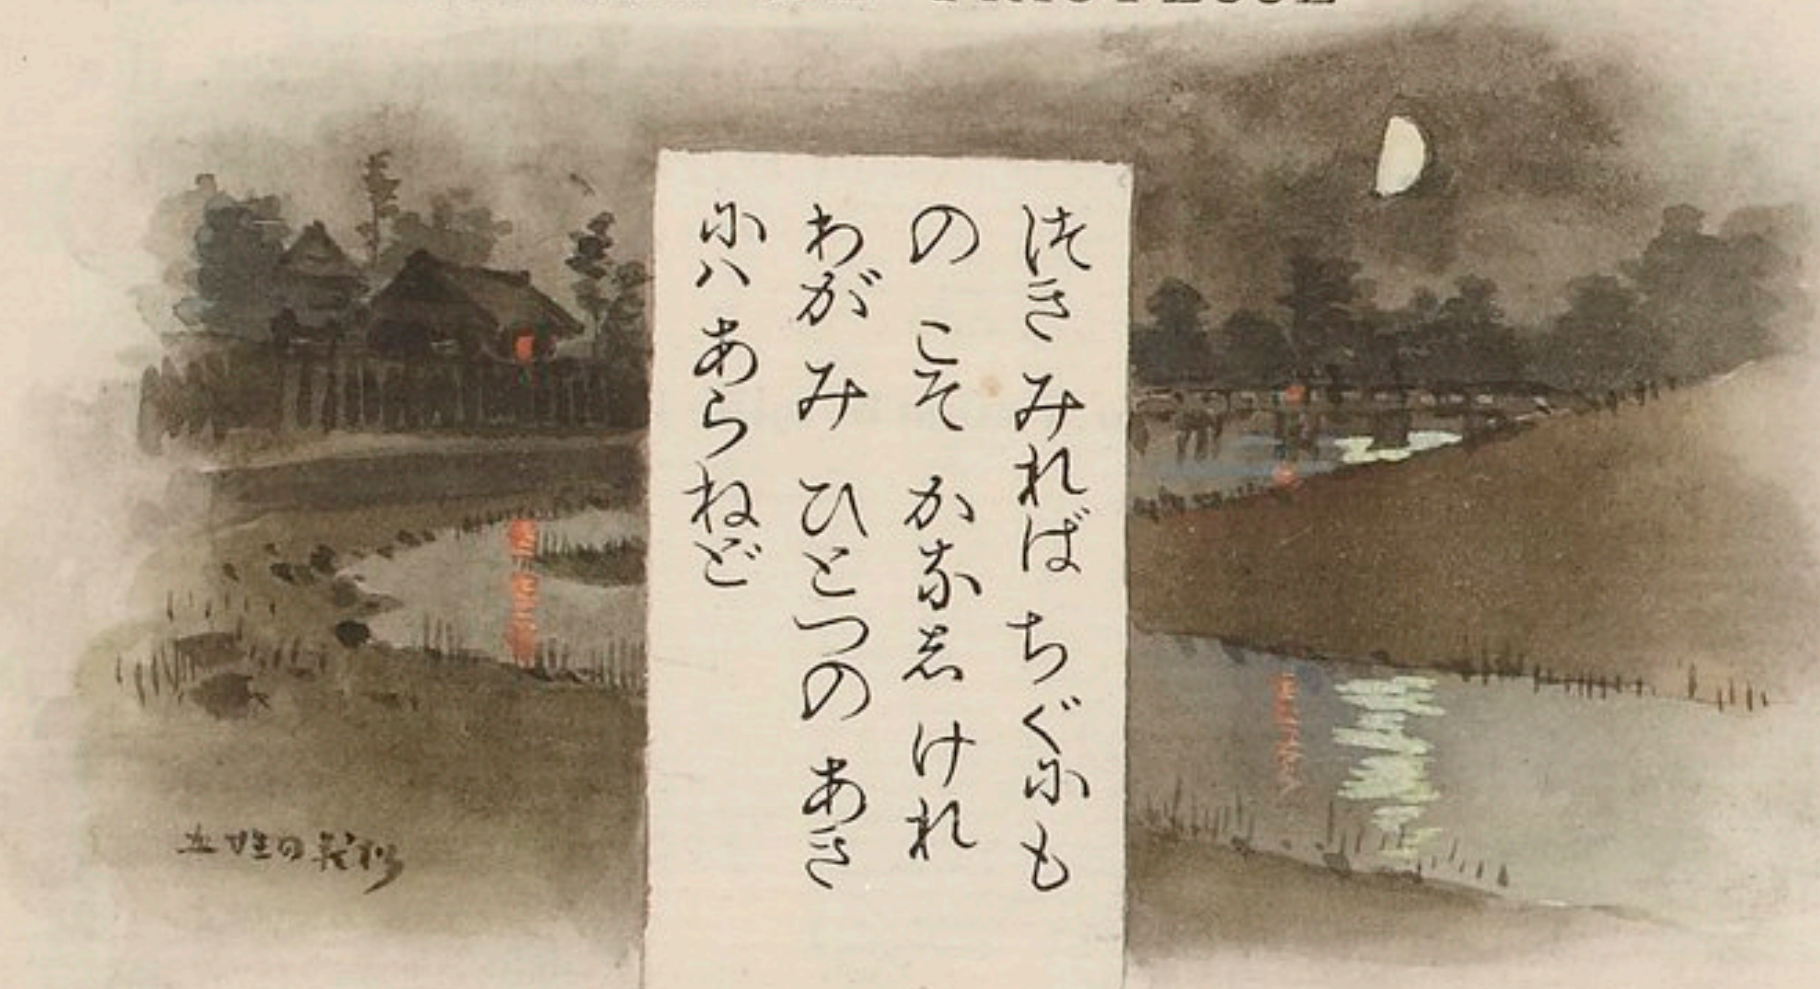 つき みれば ちぐにも
の こそ かなし けれ
わが み ひとつの あき
にハ あらねど